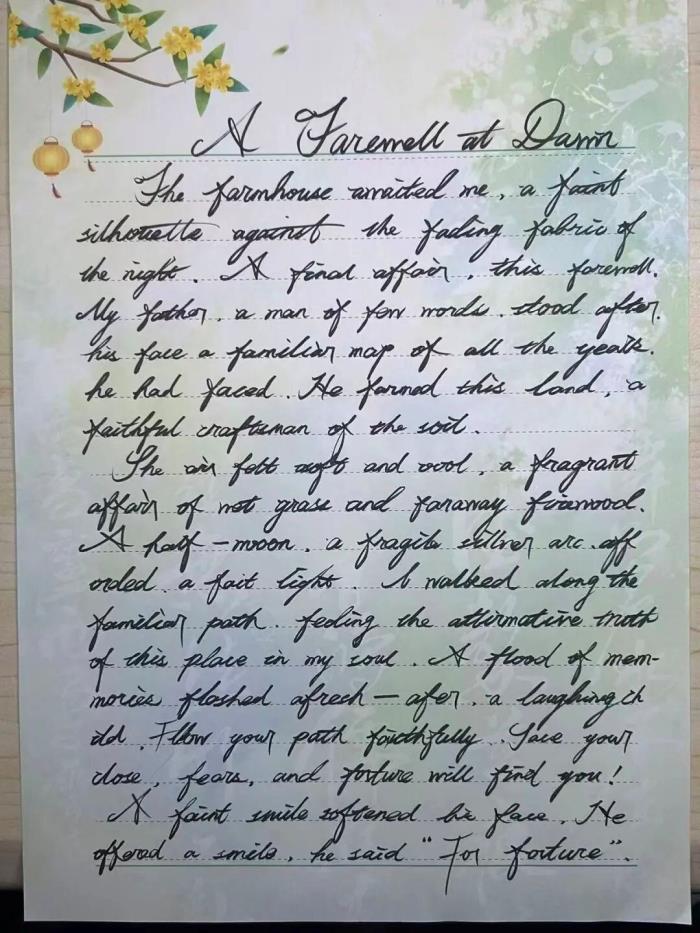 A Farewell at Dawn
The farmhouse awaited me, a faint
silhouette against the fading fabric of
the night. A final affair, this farewell.
My father, a man of few words, stood after,
his face a familiar map of all the years.
he had faced. He farmed this land, a
faithful craftsman of the soil.
The air felt soft and cool, a fragrant
affair of wet grass and faraway firewood.
A half-moon, a fragile silver arc aff
orded a fait light. I walked along the
familiar path, feeling the affirmative truth
of this place in my soul. A flood of mem-
mories flashed afresh — afer, a laughing ch
ild. Fllow your path faithfully. Face your
close, fears, and forture will find you!
A faint smile softened his face. He
offered a smile, he said "For forture".